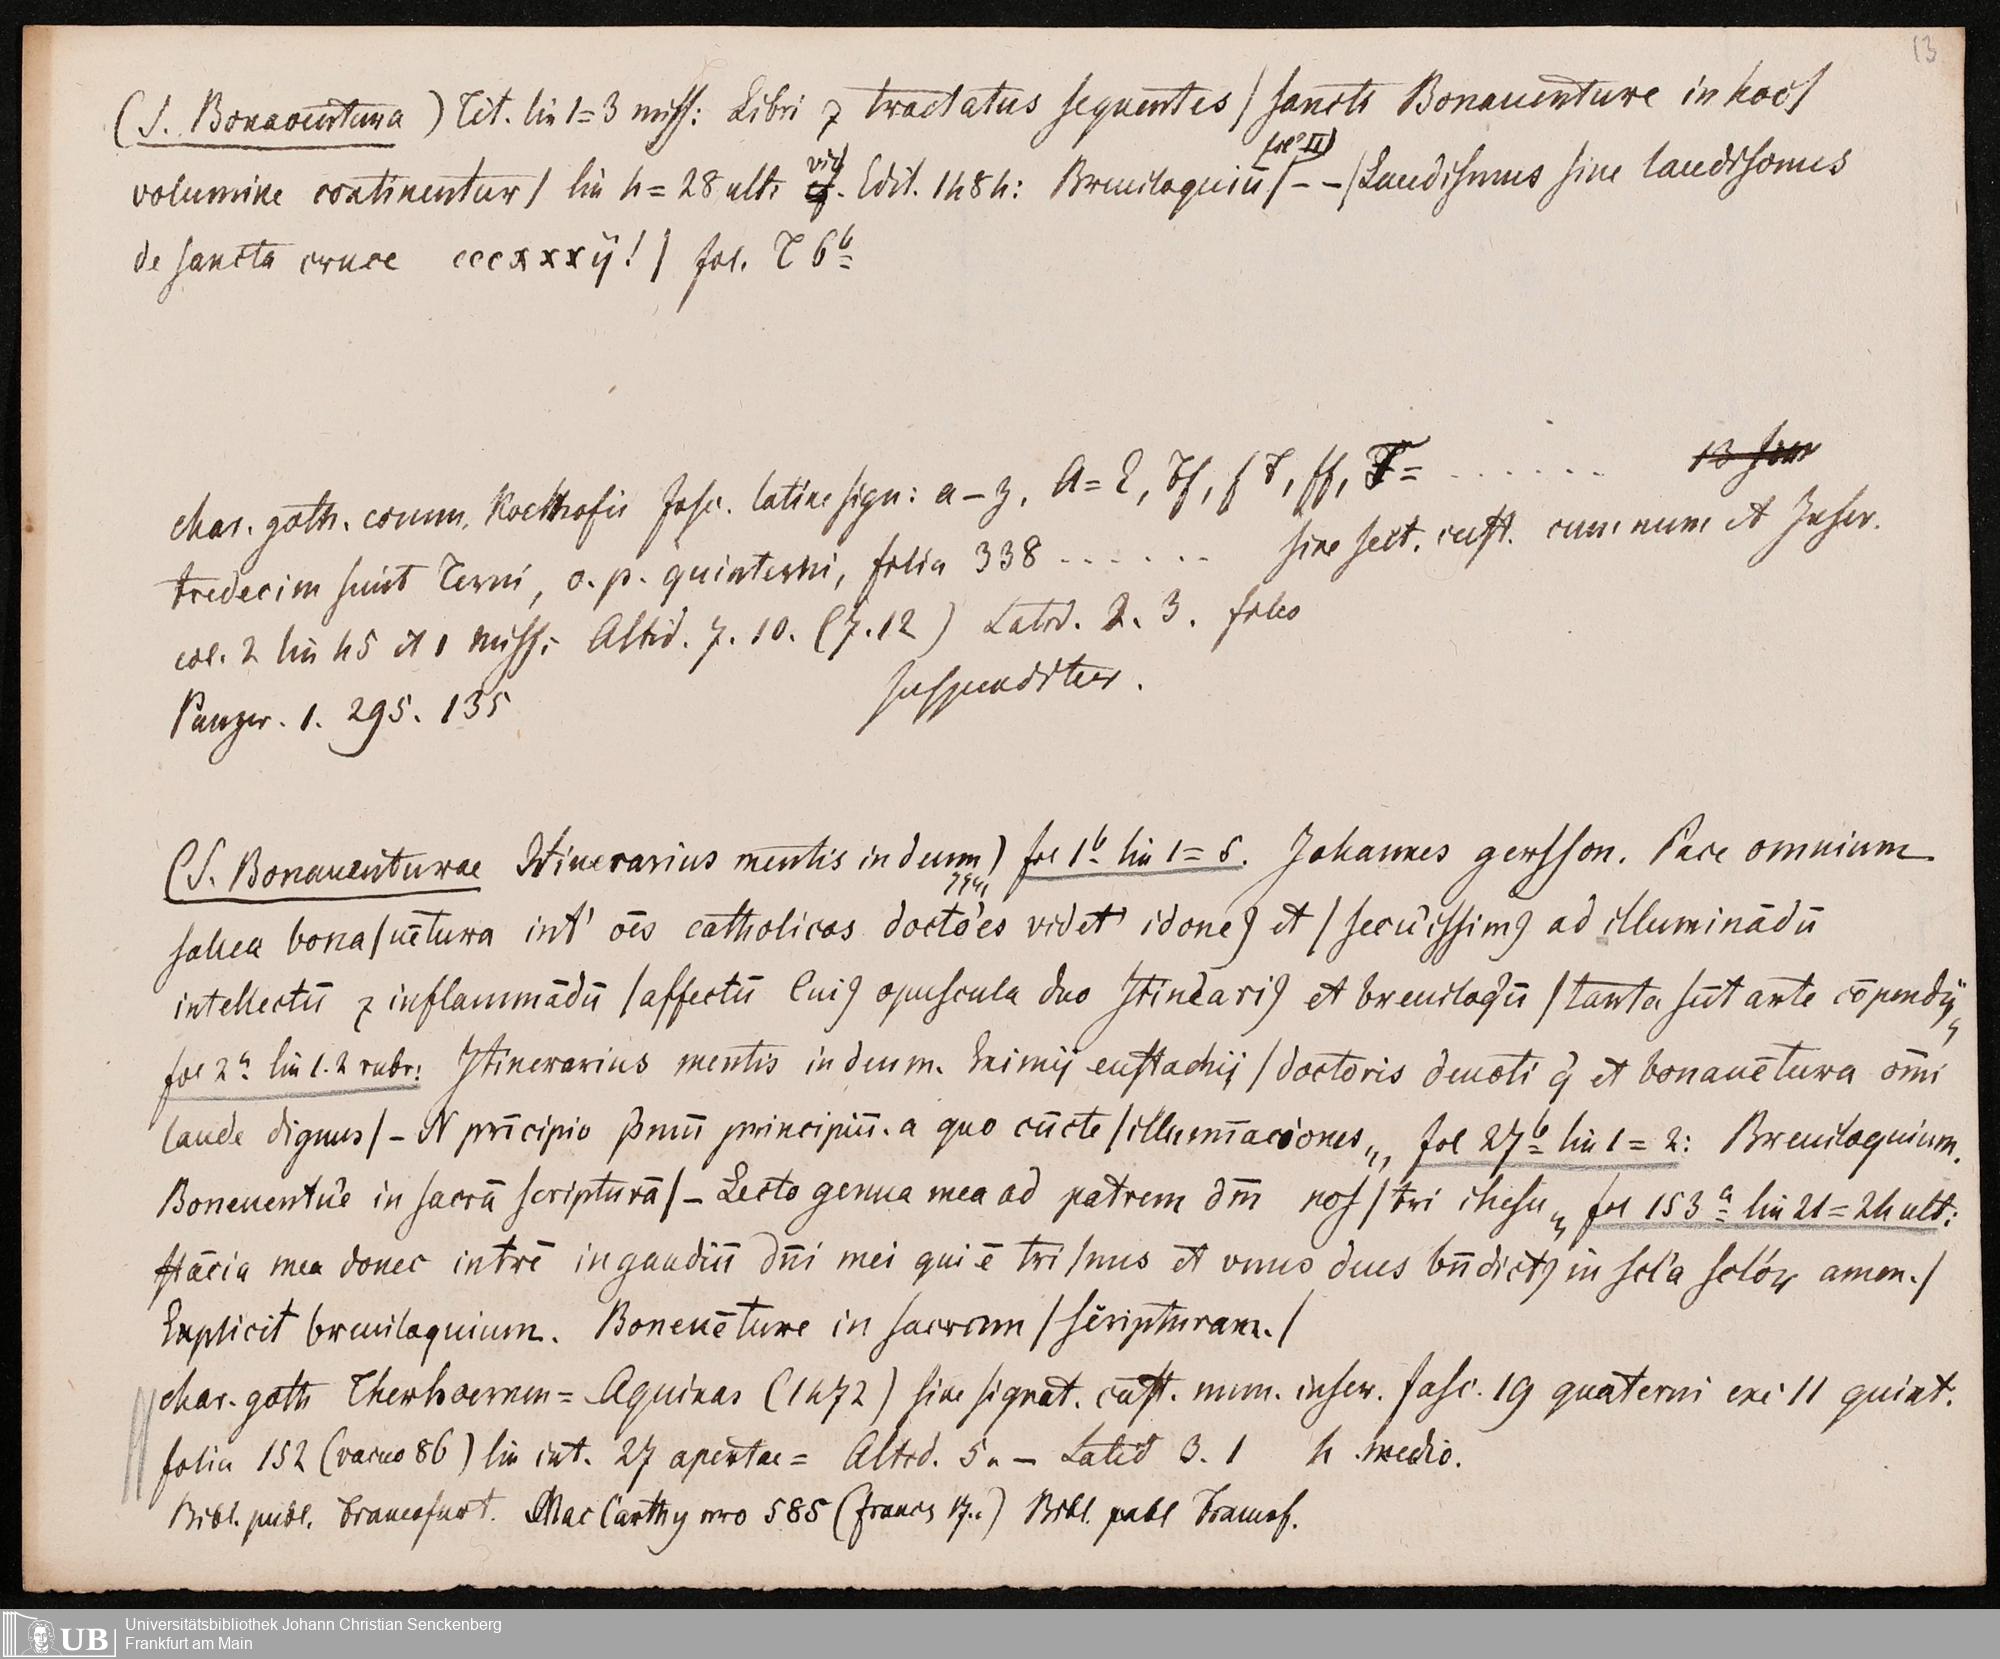 13
(S. Bonaventura) Tit. lin 1=3 miss: Libri ⁊ tractatus sequentes / sancti Bonauenture in hoc /
fol II
volumine continentur / lin 4=28 ult: vid. Edit. 1484: Breuiloquiū / - - / Laudismus siue laudisonus
de sancta cruce cccxxxij! / fol. T 6b
char. goth. comm. Koelhofii fasc. latine sign: a-z, A=
tredecim sunt Terni, o. p. quinterni, folia 338 ...... sine sect. cust. cum num et Inscr.
col. 2 lin 45 et 1 miss: Altid. 7. 10. (7.12) Latid. 2. 3. folio
Panzer. 1. 295. 135 suspenditur.
(S. Bonauenturae Itinerarius mentis in deum) fol 1b lin 1=6. Johannes gersson. Pace omnium
salua bona/uētura int' oēs catholicos docto'es videt' idoneꝰ et / secu'issimꝰ ad illuminādū
intellectū ⁊ inflammādū / affectū Cuiꝰ opuscula duo Itin'ariꝰ et breuiloq'ū / tanta sūt arte cōpendij
fol 2a lin 1.2 rubr: Itinerarius mentis in deum. Eximij eustachij / doctoris deuoti q' et bonauētura om̄i
laude dignus / - N prīcipio pmū principiū. a quo cūcte / illumīaciones,, fol 27b lin 1=2: Breuiloquium.
Boneuentu'e in sacrā scripturā / - Lecto genua mea ad patrem dm̄ nos / tri ihesu,, fol 153a lin 21=24 ult:
stācia mea donec intrē in gaudiū dn̄i mei qui ē tri / nus et vnus deus bn̄dictꝰ in scl'a sclo'ꝝ amen. /
Explicit breuiloquium. Boneuēture in sacram / scripturam. /
char. goth Therhoernen = Aquinas (1472) sine signat. cust. num. inscr. fasc. 19 quaterni exc 11 quint.
folia 152 (vacuo 86) lin int. 27 apertae = Altid. 5,, - Latid 3. 1 4 medio.
Bibl. publ. Francofurt. MacCarthy nro 585 (francs 17..) Bibl. publ Francf.
Universitätsbibliothek Johann Christian Senckenberg
UB Frankfurt am Main